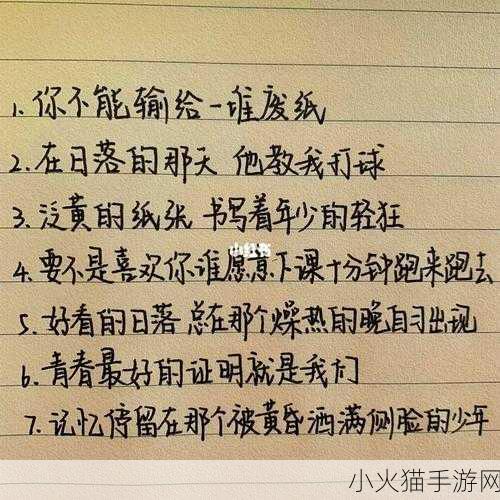 1. 你不能输给一堆废纸
2. 在日落的那天 他教我打球
3. 泛黄的纸张 书写着年少的轻狂
小红书
4. 要不是喜欢你谁愿意下课十分钟跑来跑去
5. 好看的日落 总在那个燥热的晚自习出现
6. 青春最好的证明就是我们
7. 记忆停留在那个被黄昏洒满侧脸的少年
小火猫手游网